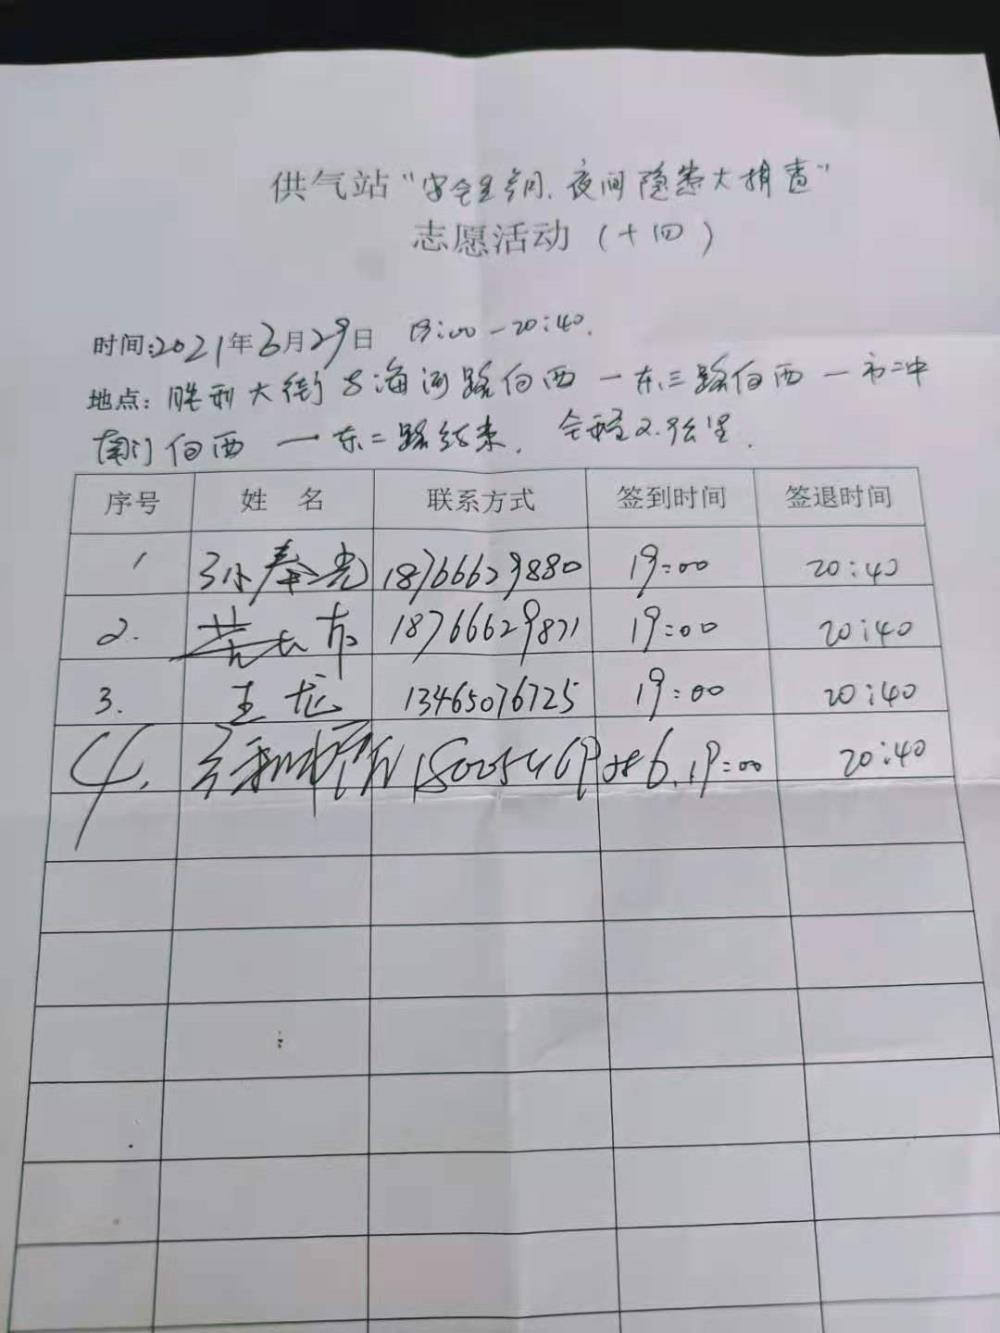 供气站“安全生产, 夜间隐患大排查”
志愿活动 (十四)
时间:2021年6月29日 19:00-20:40.
地点: 胜利大街与海河路向西 一东三路向西 一市二中
南门向西 一东二路结束. 全程2.9公里.
序号 姓 名 联系方式 签到时间 签退时间
1 孙奉光 18766629880 19:00 20:40
2. 18766629871 19:00 20:40
3. 王龙 13465076725 19:00 20:40
4. 19:00 20:40